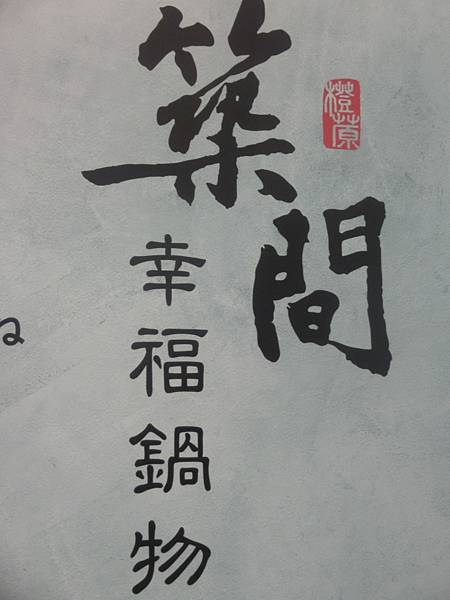 築間
幸福鍋物